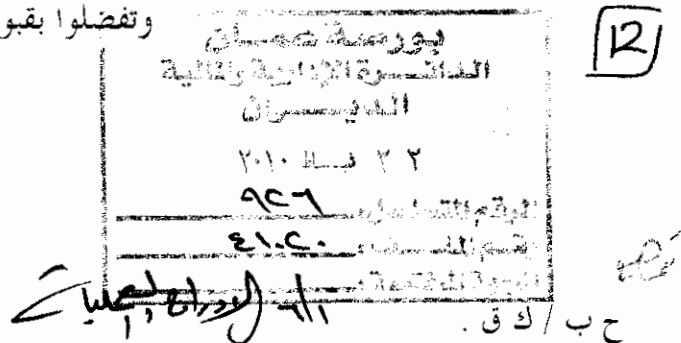 وتفضلوا بقبو
12
بورصة عمان
الدائرة الإدارية والمالية
الديوان
٢٣ شباط ٢٠١٠
الرقم المتسلسل: ٩٢٦
رقم الملف: ٤١٠٢٠
الجهة المختصة:
ح ب / ك ق .